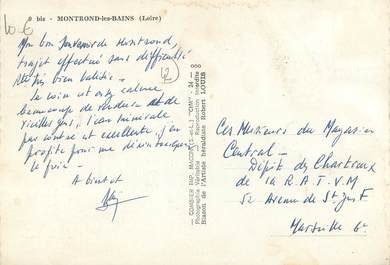 10 €
9 bis - MONTROND-les-BAINS (Loire)
Un bon souvenir de Montrond,
trajet effectué sans difficulté
bien
Le coin est assez calme
beaucoup de verdure et de
vieilles L'eau minérale
par contre est excellente j'en
profite pour me désintoxiquer
le foie -
A bientôt
2
COMBIER IMP. MACON (S.-et-L.) "CIM" - 24 - 00
Photographie Véritable - Reproduction Interdite
Blason de l'Artiste héraldiste Robert LOUIS
Ces Messieurs du Magasin
Central -
Dépôt des Chartreux
de la R.A.T.V.M
52 Avenue de St Just
Marseille 4e